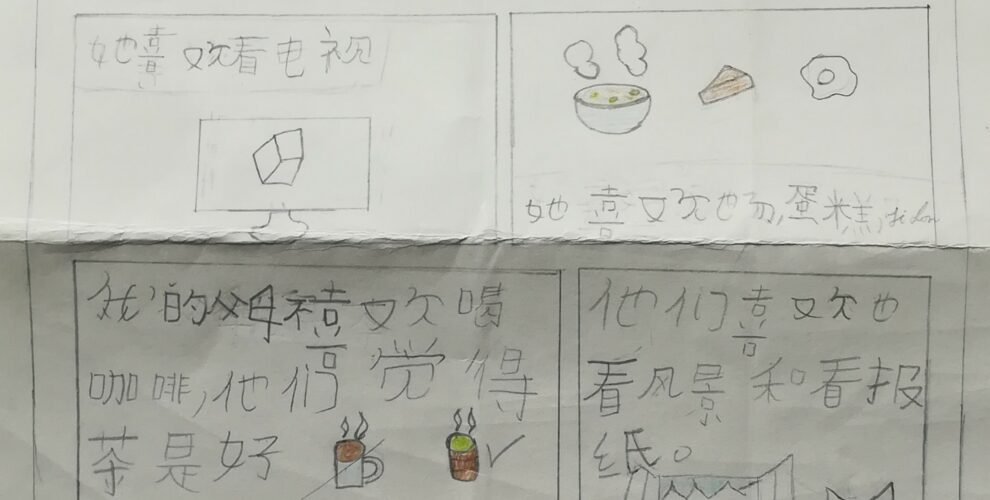 她喜欢看电视
她喜欢也,蛋糕,ji dan
我的父母喜欢喝
咖啡,他们觉得
茶是好
他们喜欢也
看风景和看报
纸。